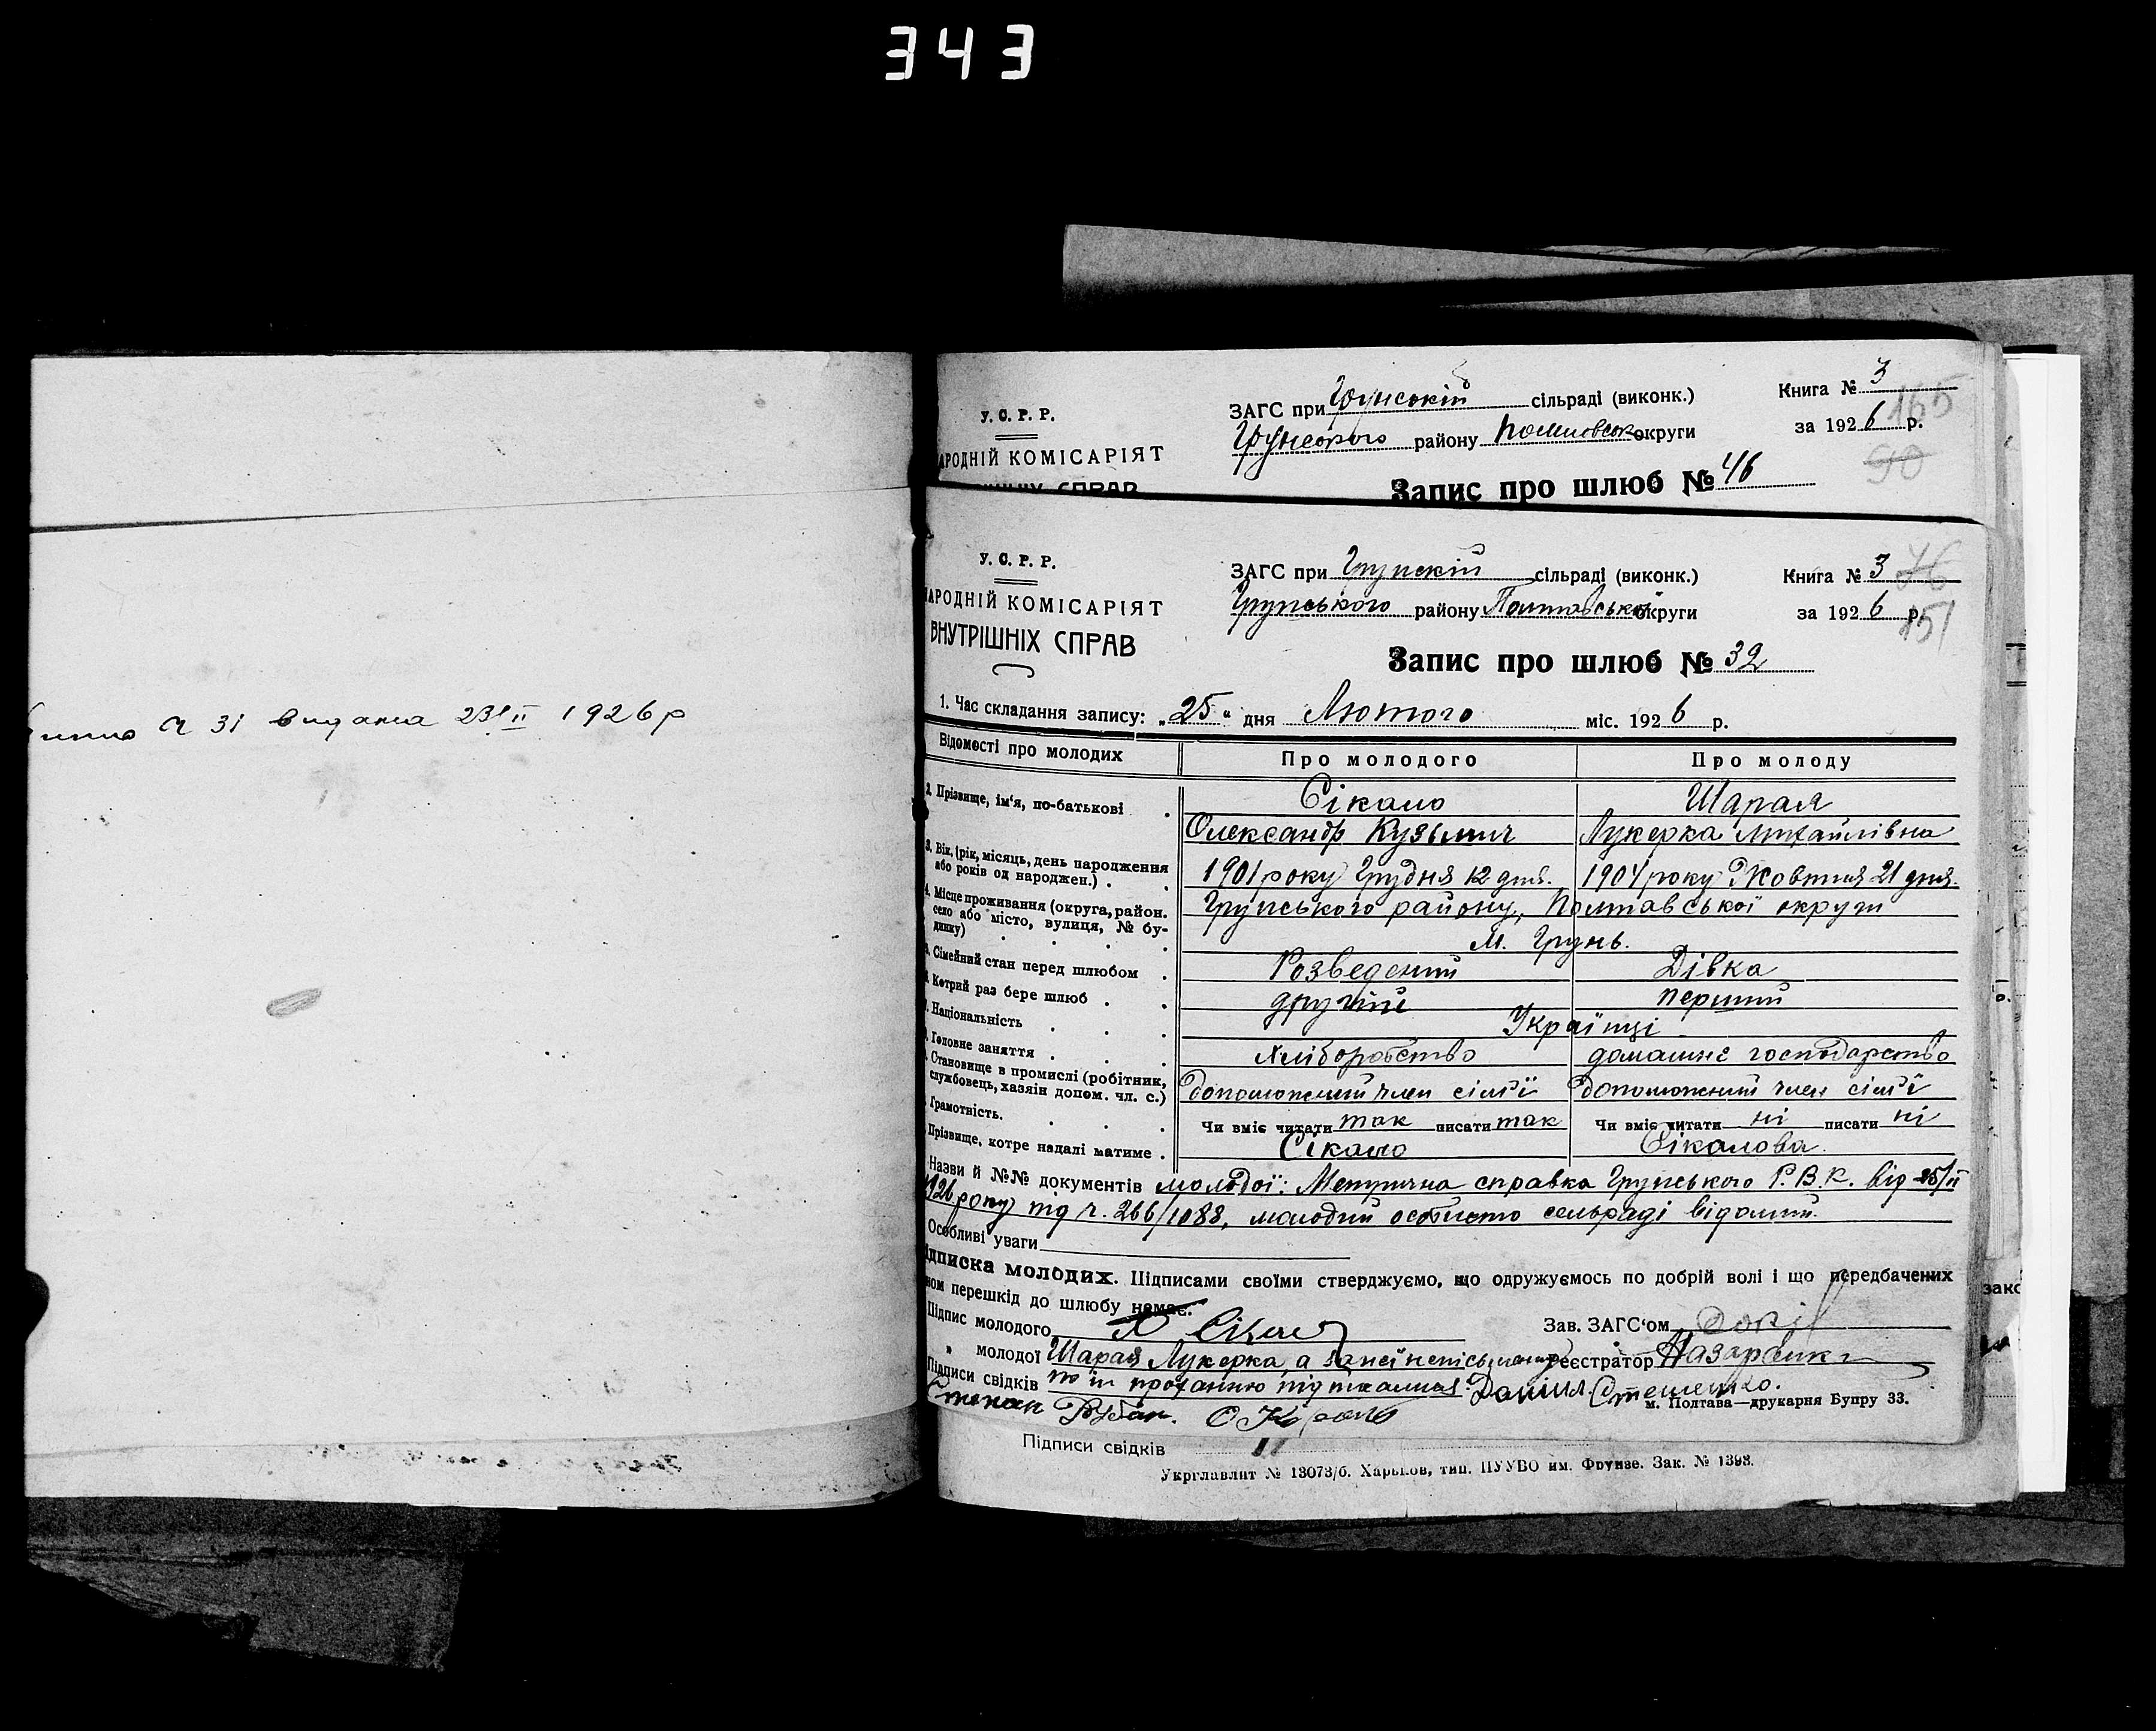 343
У. С. Р. Р.
АРОДНІЙ КОМІСАРІЯТ
ЗАГС при Грунській сільраді (виконк.)
Грунського району Полтавськ округи
Книга № 3
165
за 1926 р.
90
Запис про шлюб № 46
У. С. Р. Р.
НАРОДНІЙ КОМІСАРІЯТ
ВНУТРІШНІХ СПРАВ
ЗАГС при Грунскій сільраді (виконк.)
Грунського району Полтавської округи
Книга № 3
76
за 1926 р.
151
Запис про шлюб № 32
1. Час складання запису: „25“ дня Лютого міс. 1926 р.
Відомості про молодих Про молодого Про молоду
2. Прізвище, ім'я, по-батькові . Сікало Шарая
Олександр Кузьмич Лукерка Михайлівна
3. Вік, (рік, місяць, день народження
або років од народжен.) . . 1901 року Грудня 12 дня. 1904 року Жовтня 21 дня.
4. Місце проживання (округа, район.
село або місто, вулиця, № бу-
динку) . . . . Грунського району, Полтавської округи
м. Грунь.
Сімейний стан перед шлюбом . Розведений Дівка
Котрий раз бере шлюб . . другий перший
Національність . . . Українці
Головне заняття . . . Хліборобство домашнє господарство
Становище в промислі (робітник,
службовець, хазяін допом. чл. с.) допоможний член сім'ї допоможний член сім'ї
Грамотність. . . . Чи вміє читати так писати так Чи вміє читати ні писати ні
Прізвище, котре надалі матиме . Сікало Сікалова.
Назви й №№ документів молодої: Метрична справка Грунського Р.В.К. від 25/II
1926 року під ч. 266/1088, молодий особисто сельраді відомий.
Особливі уваги
ідписка молодих. Підписами своїми стверджуємо, що одружуємось по добрій волі і що передбачених
ном перешкід до шлюбу немає.
Підпис молодого Сікало Зав. ЗАГС'ом
„ молодої Шарая Лукерка, а за неї неписьменну реєстратор Назаренк
Підписи свідків по їй проханню підписался: Даніил Стешенко.
Степан Рубан.
м. Полтава—друкарня Бупру 33.
Підписи свідків
Укрглавлит № 13073/б. Харьков, тип. ПУУВО им. Фрунзе. Зак. № 1393.
ч 31 видана 23/II 1926 р
зако